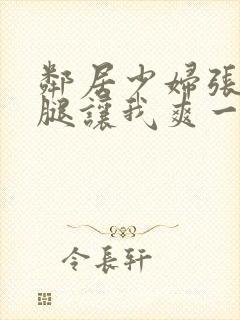 鄰居少婦張
腿讓我爽一
令長軒